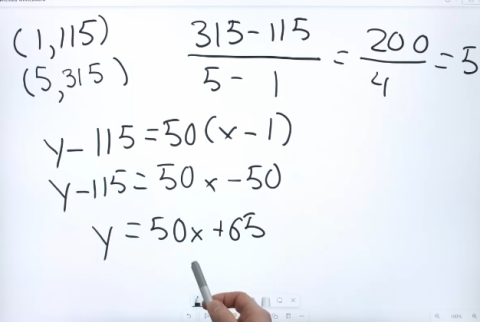 (1,115)
(5,315)
315-115 / 5-1 = 200 / 4 = 5
y-115=50(x-1)
y-115=50x-50
y=50x+65